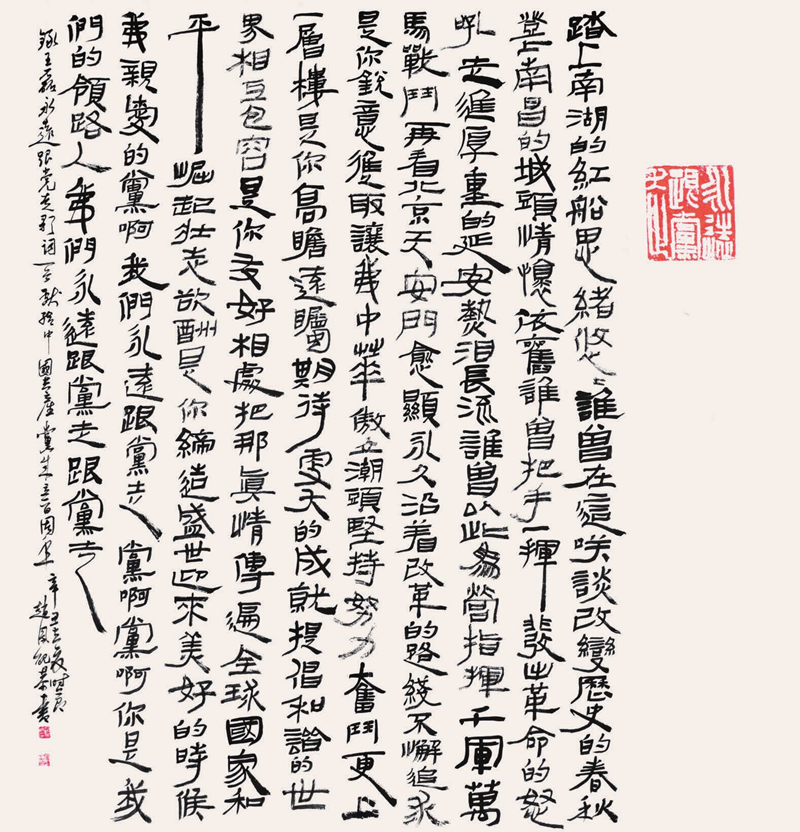 踏上南湖的紅船思緒悠々誰曾在這咲談改變歷史的春秋
登上南昌的城頭情懷依舊誰曾把手一揮發出革命的怒
吼走進厚重的延安熱淚長流誰曾以此為營指揮千軍萬
馬戰鬥再看北京天安門愈顯永久沿着改革的路綫不懈追求
是你銳意進取讓我中華傲立潮頭堅持努力奮鬥更上
一層樓是你高瞻遠矚期待雯天的成就提倡和諧的世
界相互包容是你友好相處把那真情傳遍全球國家和
平崛起壯志欲酬是你締造盛世迎來美好的時候
我親愛的黨啊我們永遠跟黨走黨啊黨啊你是我
們的領路人我們永遠跟黨走跟黨走
錄王磊永遠跟党走歌詞一首獻給中國共產黨成立百周年
辛丑立夏時節
趙國紀恭書
永遠跟黨走